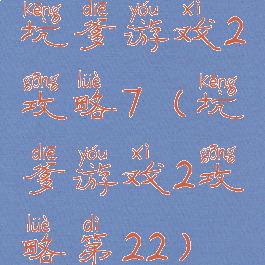 kēng diē yóu xì
坑爹游戏2
gōng lüè kēng
攻略7(坑
diē yóu xì gōng
爹游戏2攻
lüè dì
略第22)